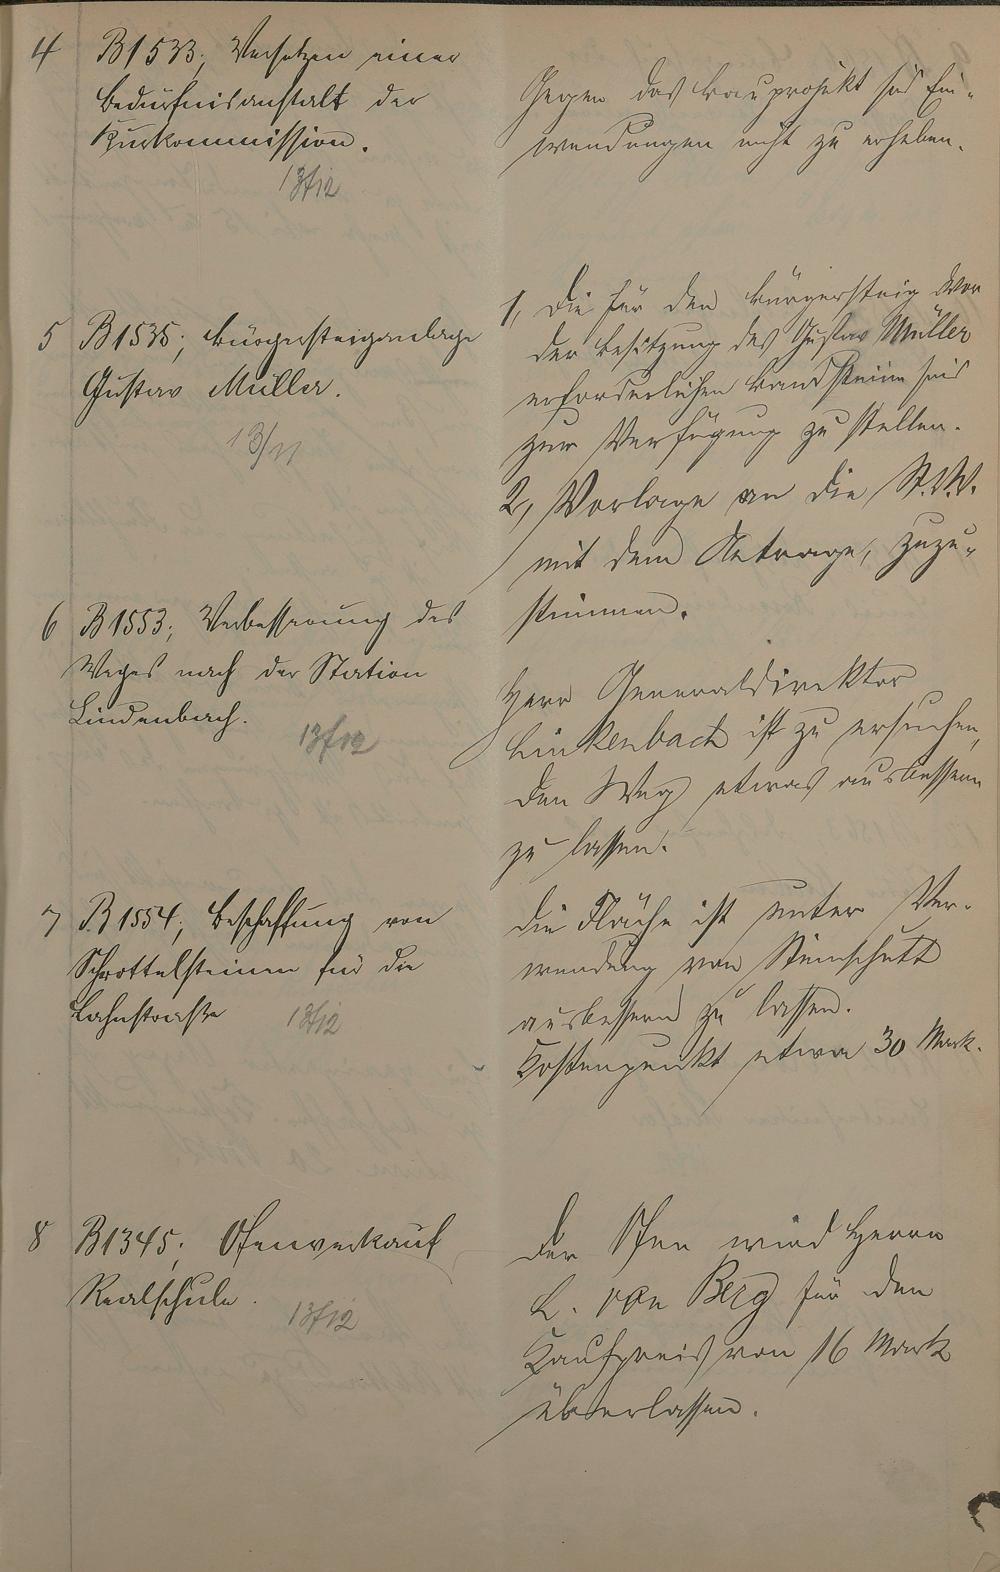 4 B 1533; Versetzen einer
Bedürfnisanstalt der
Kurkommission.
13/12
Gegen das Bauprojekt sind Ein-
wendungen nicht zu erheben.
5 B 1535; Bürgersteiganlage
Gustav Müller.
13/11
1, Die für den Bürgersteig vor
der Besitzung des Gustav Müller
erforderlichen Randsteine sind
zur Verfügung zu stellen.
2, Vorlage an die St.V.V.
mit dem Antrage, zuzu-
stimmen.
6 B 1553; Verbesserung des
Weges nach der Station
Lindenbach.
13/12
Herr Generaldirektor
Linkenbach ist zu ersuchen,
den Weg etwas ausbessern
zu lassen.
7 B 1554; Beschaffung von
Schrottelsteinen für die
Lahnstraße
13/12
Die Fläche ist unter Ver-
wendung von Steinschutt
ausbessern zu lassen.
Kostenpunkt etwa 30 Mark.
8 B 1345; Ofenverkauf
Realschule.
13/12
Der Ofen wird Herrn
L. von Berg für den
Kaufpreis von 16 Mark
überlassen.